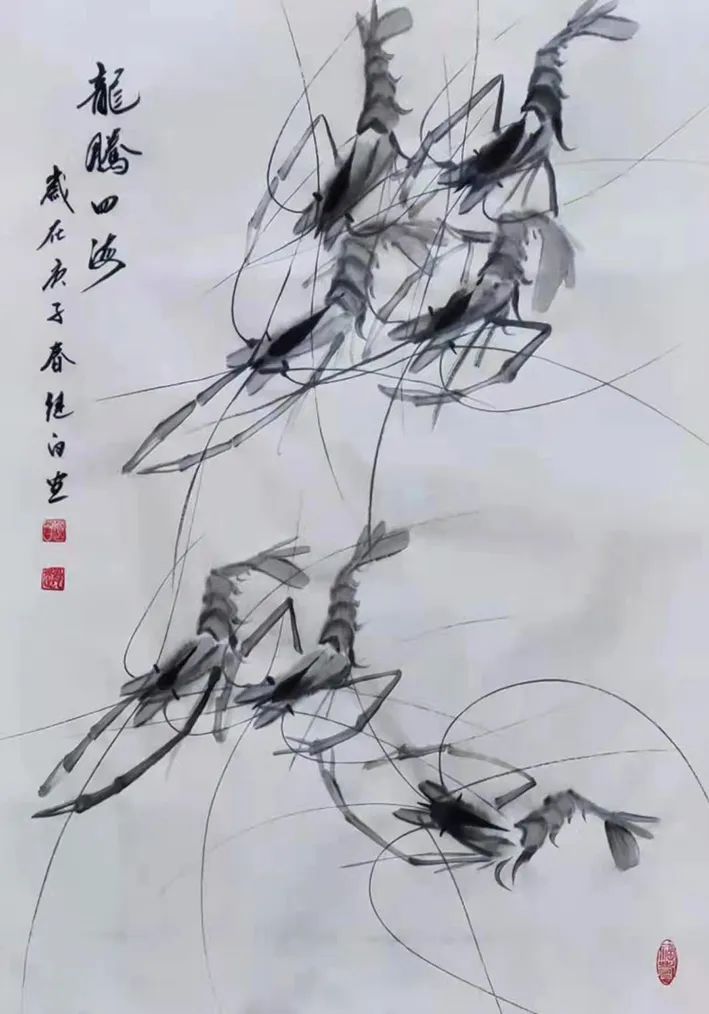 龍騰四海
歲在庚子春继白画